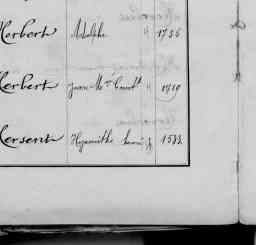 Herbert Adolphe " 1736
Herbert Jean Mie Const. " 1519
Hersent Hyacinthe 1533